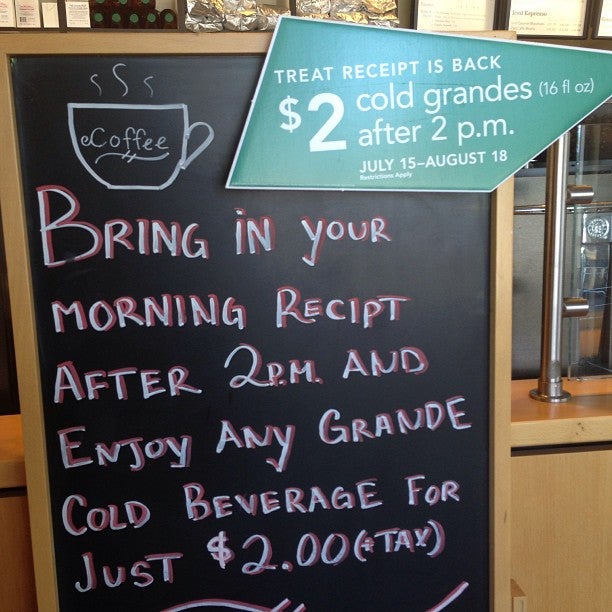 TREAT RECEIPT IS BACK
$2 cold grandes (16 fl oz)
after 2 p.m.
JULY 15–AUGUST 18
Restrictions Apply
eCoffee
BRING IN YOUR
MORNING RECIPT
AFTER 2P.M. AND
ENJOY ANY GRANDE
COLD BEVERAGE FOR
JUST $2.00(+TAX)